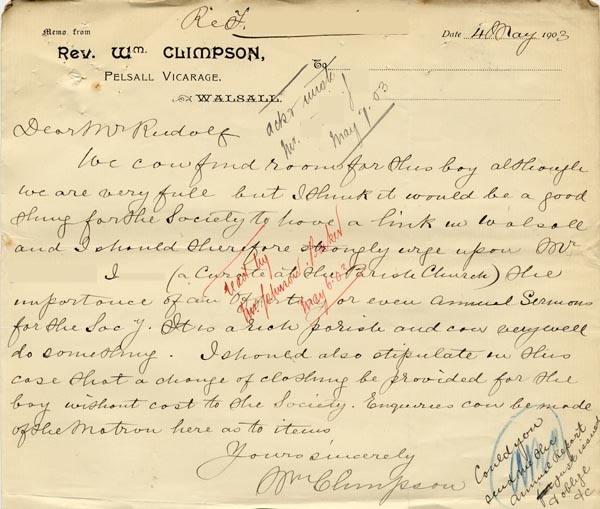 Re F.
Memo. from
Date 4 May 1903
Rev. Wm. CLIMPSON,
To
PELSALL VICARAGE,
WALSALL.
ackd
Mr.
May 7.03
Dear Mr Rudolf
We can find room for this boy although
we are very full but I think it would be a good
thing for the Society to have a link in Walsall
and I should therefore strongly urge upon Mr
I (a Curate at the Parish Church) the
importance of an Offertory or even Annual Sermons
for the Socy. It is a rich parish and can very well
do something. I should also stipulate in this
case that a change of clothing be provided for the
boy without cost to the Society. Enquiries can be made
of the Matron here as to items
Yours sincerely
Wm Climpson
read by
May 6.03
Could you
send me the
Annual Report
just issued
& oblige
&c